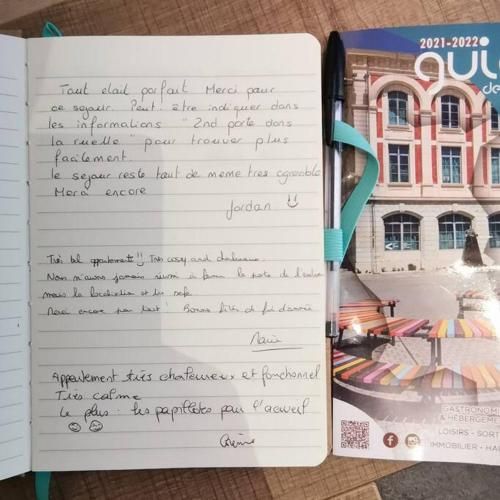 Tout était parfait Merci pour
ce sejour. Peut etre indiquer dans
les informations "2nd porte dans
la ruelle" pour trouver plus
facilement.
le sejour reste tout de meme tres agréable
Merci encore
Jordan
Très bel appartement!! Très cosy and chaleureux.
Nous n'avons jamais réussi à fermer la porte de l'entrée
mais la localisation et
Merci encore pour tout! Bonnes fêtes de fin d'année
Marie
Appartement très chaleureux et fonctionnel
Très calme
Le plus: les papillotes pour l'accueil
2021-2022
gui
de
GASTRONOM
& HÉBERGEME
LOISIRS - SORT
IMMOBILIER - HA